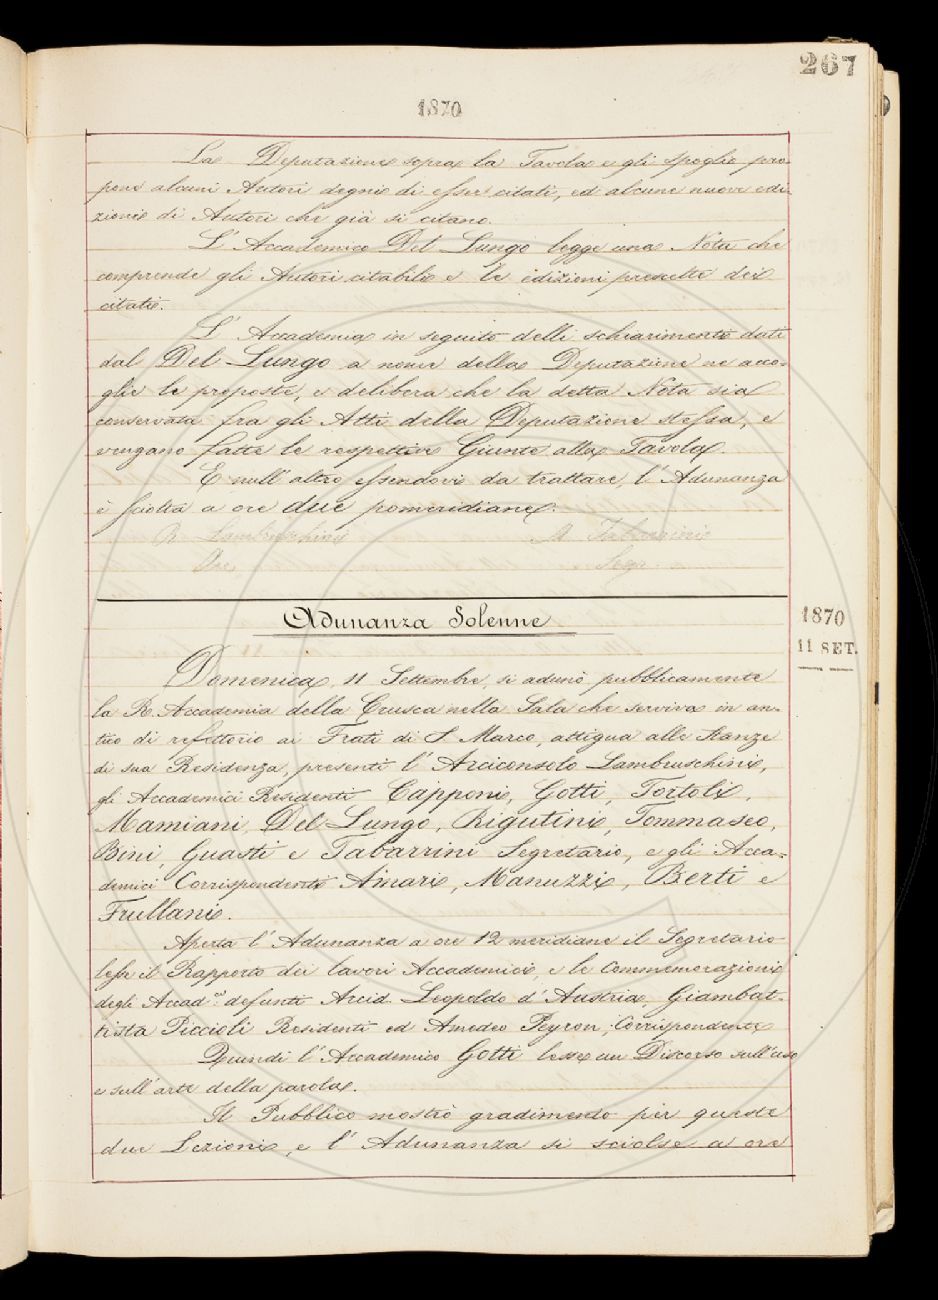 267
1870
La Deputazione sopra la Tavola e gli spogli pro-
pone alcuni Autori degni di esser citati, ed alcune nuove edi-
zioni di Autori che già si citano.
L'Accademico Del Lungo legge una Nota che
comprende gli Autori citabili e le edizioni prescelte dei
citati.
L'Accademia in seguito delli schiarimenti dati
dal Del Lungo a nome della Deputazione ne acco-
glie le proposte, e delibera che la detta Nota sia
conservata fra gli Atti della Deputazione stessa, e
vengano fatte le respettive Giunte alla Tavola.
E null'altro essendovi da trattare, l'Adunanza
è sciolta a ore due pomeridiane.
R. Lambruschini M. Tabarrini
Segr.
Adunanza Solenne
1870
11 SET.
Domenica, 11 Settembre, si adunò pubblicamente
la R. Accademia della Crusca nella Sala che serviva in an-
tico di refettorio ai Frati di S. Marco, attigua alle Stanze
di sua Residenza, presenti l'Arciconsolo Lambruschini,
gli Accademici Residenti Capponi, Gotti, Tortoli,
Mamiani, Del Lungo, Rigutini, Tommaseo,
Bini, Guasti e Tabarrini Segretario, e gli Acca-
demici Corrispondenti Amari, Manuzzi, Berti e
Frullani.
Aperta l'Adunanza a ore 12 meridiane il Segretario
lesse il Rapporto dei lavori Accademici, e le Commemorazioni
degli Accad.ci defunti Arcid. Leopoldo d'Austria, Giambat-
tista Piccioli Residenti ed Amedeo Peyron, Corrispondente.
Quindi l'Accademico Gotti lesse un Discorso sull'uso
e sull'arte della parola.
Il Pubblico mostrò gradimento per queste
due Lezioni, e l'Adunanza si sciolse a ore